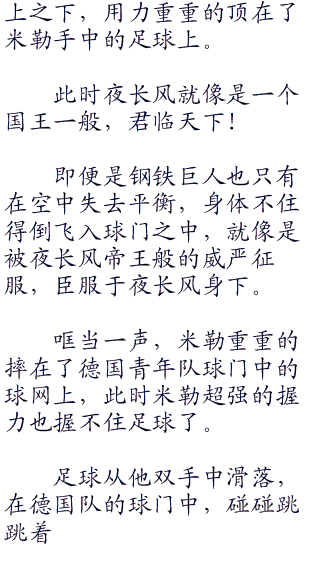 上之下，用力重重的顶在了
米勒手中的足球上。
此时夜长风就像是一个
国王一般，君临天下！
即便是钢铁巨人也只有
在空中失去平衡，身体不住
得倒飞入球门之中，就像是
被夜长风帝王般的威严征
服，臣服于夜长风身下。
哐当一声，米勒重重的
摔在了德国青年队球门中的
球网上，此时米勒超强的握
力也握不住足球了。
足球从他双手中滑落，
在德国队的球门中，碰碰跳
跳着